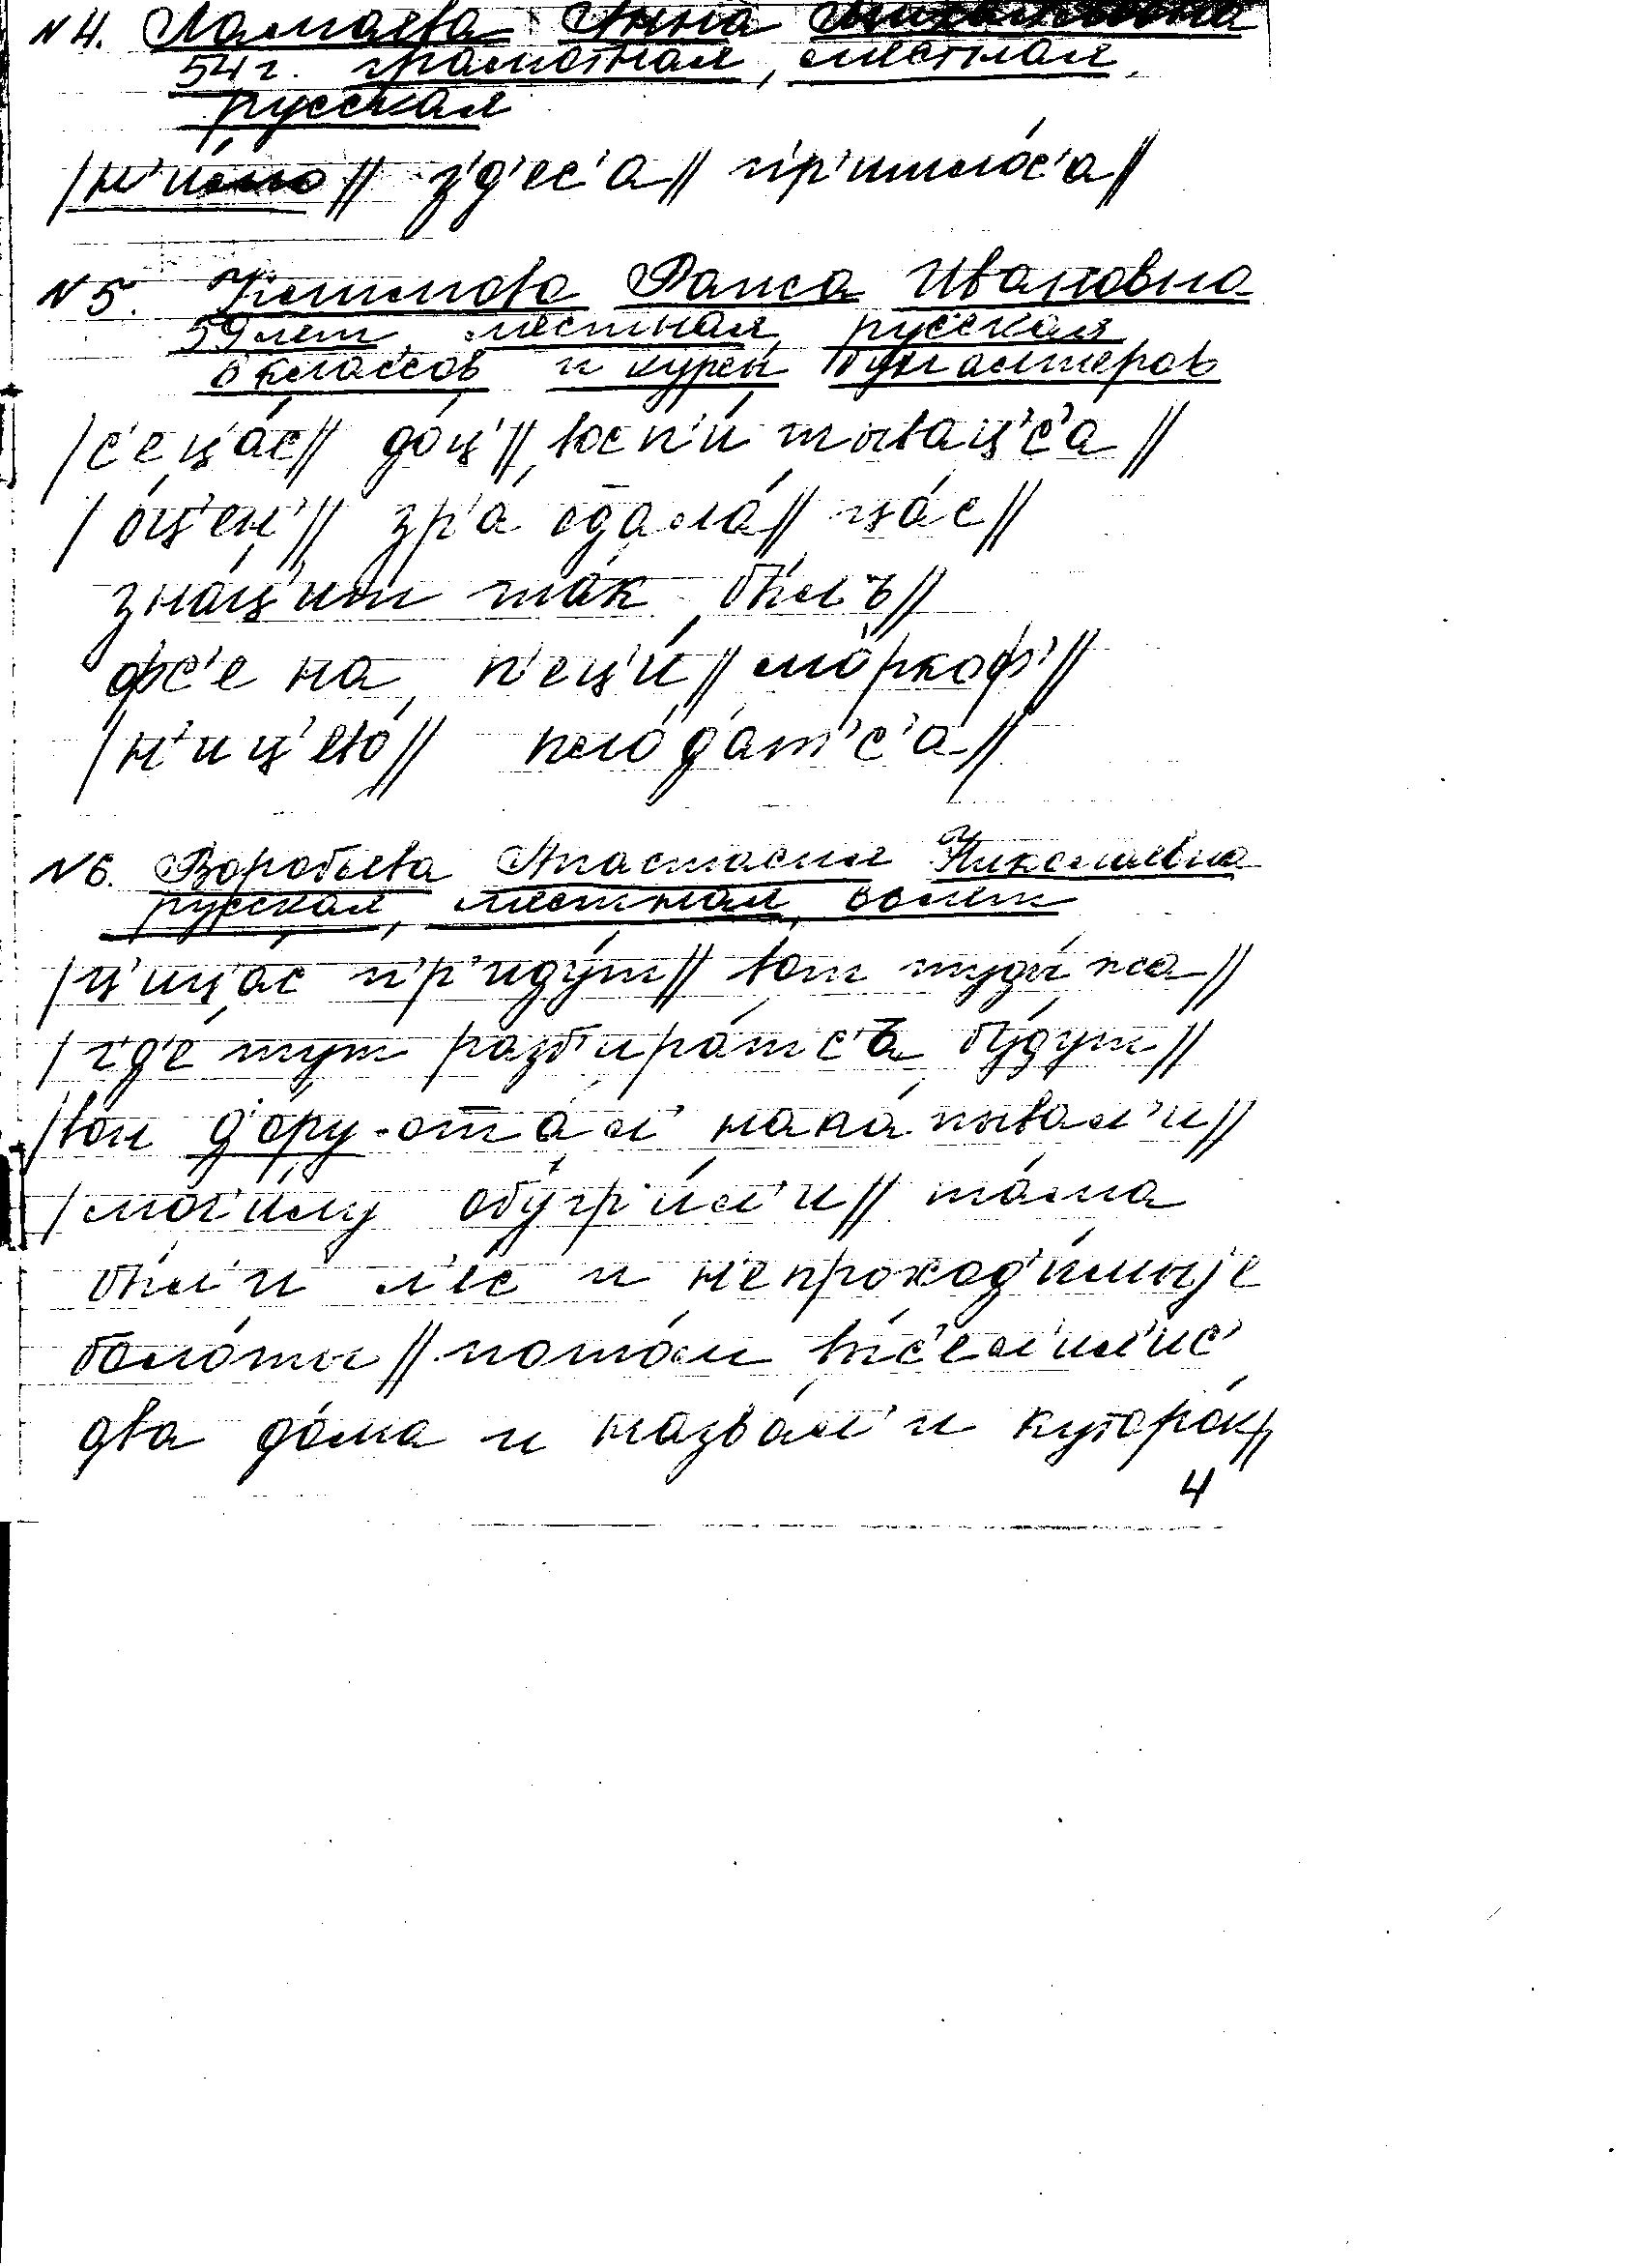 N 4. Ламаева Анна Михайловна
54 г. грамотная, местная,
русская
/м'и́мо// з'д'ес'а// пр'ишло́с'а//
N 5. Раиса Ивановна
59 лет, местная, русская
классов и курсы бухгалтеров
/с'ец'а́с// доц'// восп'и́тывац'с'а//
/о́ц'ен'// зр'а сдала́// ца́с//
зна́ц'ит так бы́лъ//
фс'е на п'ец'и́// мо́ркоф'//
/н'иц'ево́// пло́дат'с'а//
N 6. Воробьева Анастасия Николаевна
русская, местная, лет
/ц'иц'ас пр'иду́т// вот туды́ на//
/г'д'е́ тут разб'ира́тс'ъ бу́дут//
/вон д'ору-ота́м нака́пывал'и//
/мог'и́лу обугр'и́л'и// та́ма
бы́л'и л'ес и н'епроход'и́мыjе
боло́ты// пото́м вы́с'ел'ил'ис'
два до́ма и назва́л'и куторо́к//
4